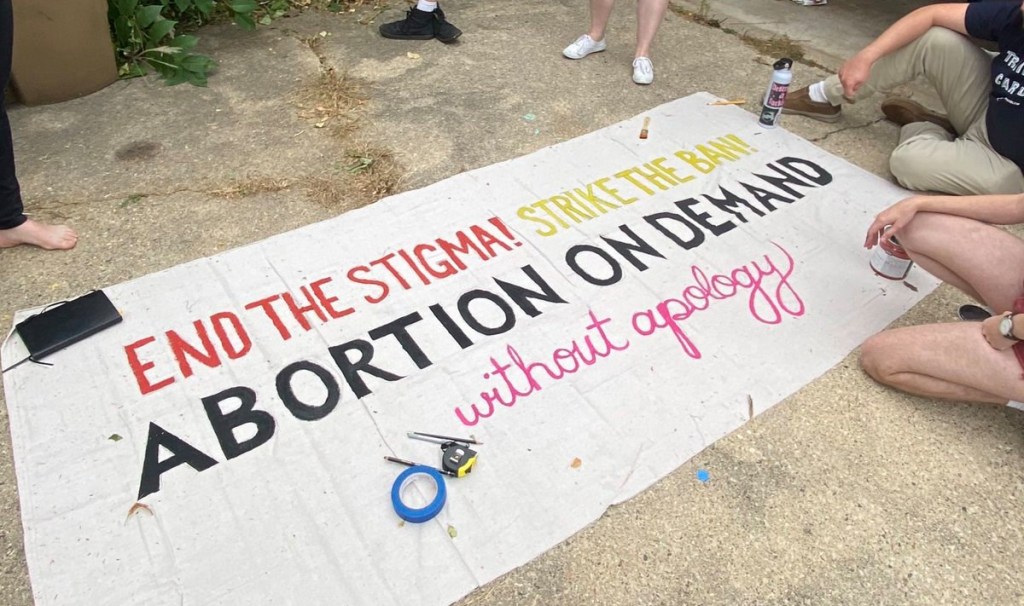 END THE STIGMA! STRIKE THE BAN!
ABORTION ON DEMAND
without apology